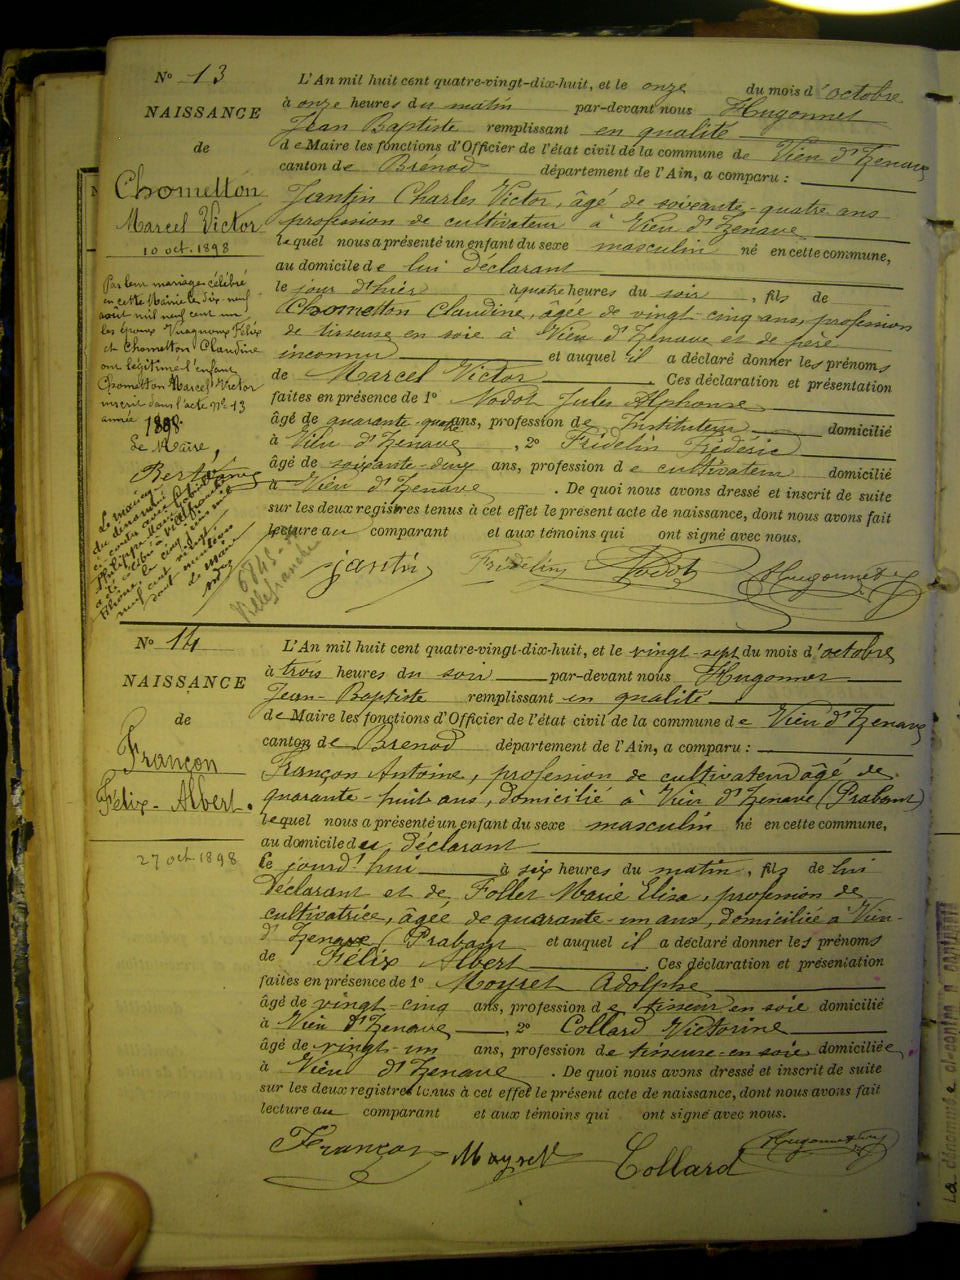 N° 13
NAISSANCE
de
Chometton
Marcel Victor
10 oct. 1898
Par leur mariage célébré
en cette Mairie le dix-neuf
août mil neuf cent un
les époux Vuagnoux Félix
et Chometton Claudine
ont légitimé l'enfant
Chometton Marcel Victor
inscrit dans l'acte N° 13
année 1898.
Le Maire,
6845
Villefranche
L'An mil huit cent quatre-vingt-dix-huit, et le onze du mois d'octobre
à onze heures du matin par-devant nous Hugonnet
Jean Baptiste remplissant en qualité
de Maire les fonctions d'Officier de l'état civil de la commune de Vieu d'Izenave
canton de Brénod département de l'Ain, a comparu :
Jantin Charles Victor, âgé de soixante-quatre ans
profession de cultivateur à Vieu d'Izenave
lequel nous a présenté un enfant du sexe masculin né en cette commune,
au domicile de lui déclarant
le jour d'hier à quatre heures du soir, fils de
Chometton Claudine, âgée de vingt-cinq ans, profession
de tisseuse en soie à Vieu d'Izenave et de père
inconnu et auquel il a déclaré donner les prénoms
de Marcel Victor. Ces déclaration et présentation
faites en présence de 1° Nodot Jules Alphonse
âgé de quarante-quatre ans, profession de Instituteur domicilié
à Vieu d'Izenave, 2° Fridelin Frédéric
âgé de soixante-deux ans, profession de cultivateur domicilié
à Vieu d'Izenave. De quoi nous avons dressé et inscrit de suite
sur les deux registres tenus à cet effet le présent acte de naissance, dont nous avons fait
lecture au comparant et aux témoins qui ont signé avec nous.
Jantin Fridelin Nodot Hugonnet
N° 14
NAISSANCE
de
Françon
Félix-Albert.
27 oct. 1898
L'An mil huit cent quatre-vingt-dix-huit, et le vingt-sept du mois d'octobre
à trois heures du soir par-devant nous Hugonnet
Jean-Baptiste remplissant en qualité
de Maire les fonctions d'Officier de l'état civil de la commune de Vieu d'Izenave
canton de Brenod département de l'Ain, a comparu :
Françon Antoine, profession de cultivateur âgé de
quarante-huit ans, domicilié à Vieu d'Izenave (Prabant)
lequel nous a présenté un enfant du sexe masculin né en cette commune,
au domicile du déclarant
le jourd'hui à six heures du matin, fils de lui
déclarant et de Follet Marie Elisa, profession de
cultivatrice, âgée de quarante-un ans, domiciliée à Vieu-
d'Izenave (Prabant et auquel il a déclaré donner les prénoms
de Félix Albert. Ces déclaration et présentation
faites en présence de 1° Moyret Adolphe
âgé de vingt-cinq ans, profession de tisseur en soie domicilié
à Vieu d'Izenave, 2° Collard Victorine
âgé de vingt-un ans, profession de tisseuse en soie domiciliée
à Vieu d'Izenave. De quoi nous avons dressé et inscrit de suite
sur les deux registres tenus à cet effet le présent acte de naissance, dont nous avons fait
lecture au comparant et aux témoins qui ont signé avec nous.
Françon Moyret Collard Hugonnet